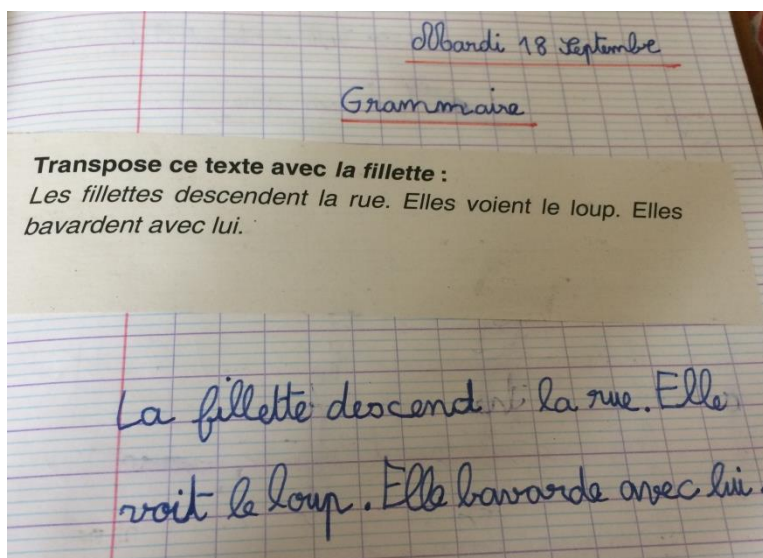 Mardi 18 Septembre
Grammaire
Transpose ce texte avec la fillette :
Les fillettes descendent la rue. Elles voient le loup. Elles
bavardent avec lui.
La fillette descend la rue. Elle
voit le loup. Elle bavarde avec lui.